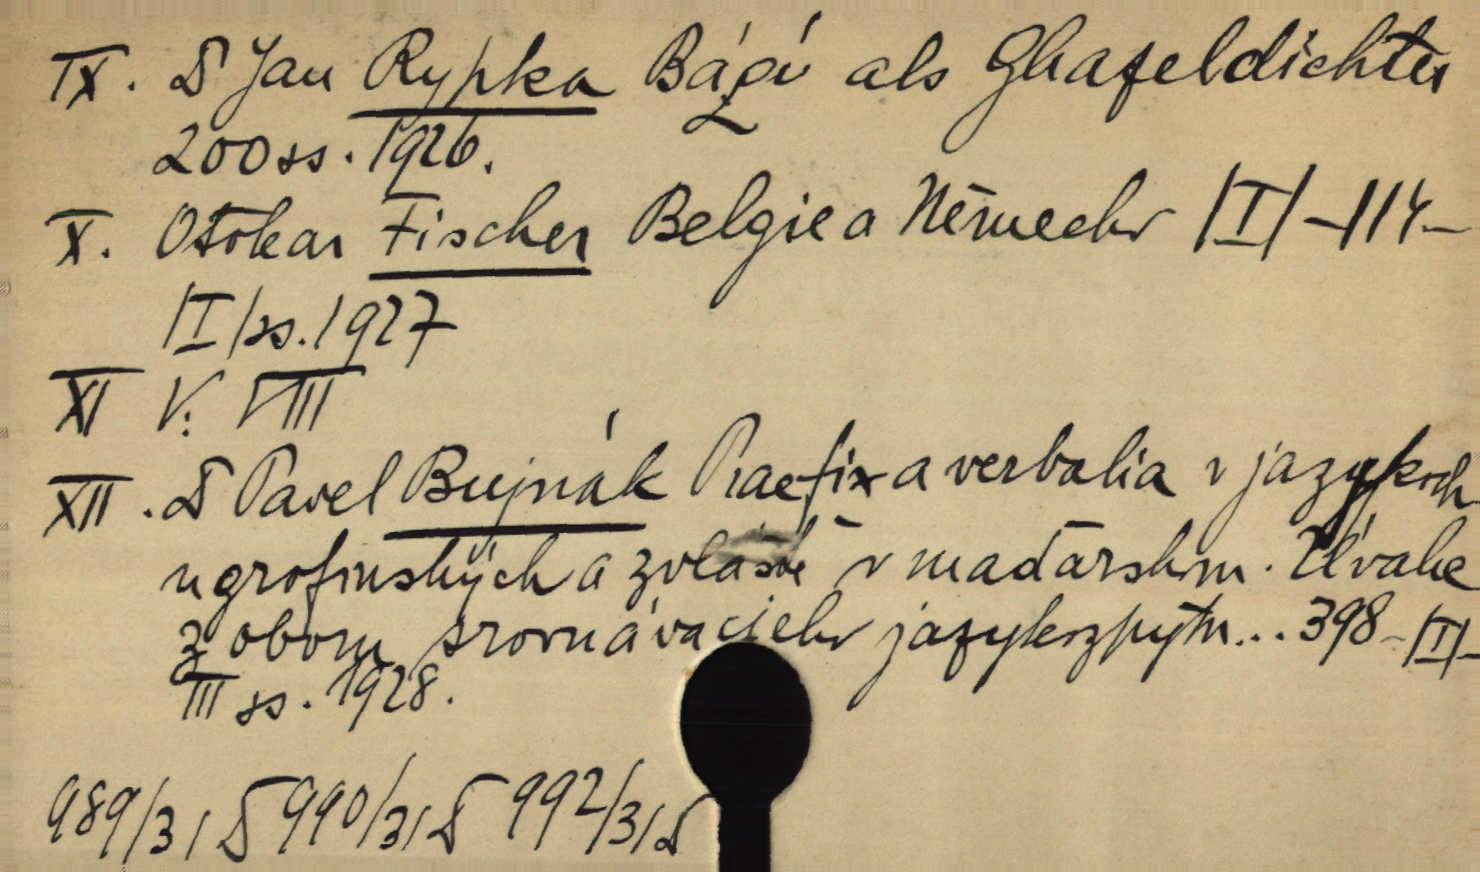 IX. D Jan Rypka Báqí als Ghazeldichter
200 ss. 1926.
X. Otokar Fischer Belgie a Německo /I/ – 114 –
/I/ ss. 1927
XI V: VIII
XII. D Pavel Bujnák Praefixa verbalia v jazykoch
ugrofinských a zvlášť v maďarskom. Úvahe
z oboru srovnávacieho jazykozpytu... 398 – /I/ –
III ss. 1928.
989/31 D 990/31 D 992/31 D